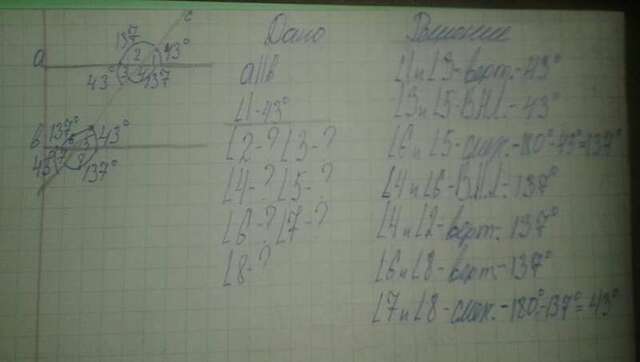 Дано
Решение
c
137° 43°
2
a
43° 3 4 137°
a||b
∠1-43°
∠2-? ∠3-?
∠4-? ∠5-?
∠6-? ∠7-?
∠8-?
b 137° 6 43°
5
43° 7 8 137°
∠1 и ∠3-верт.-43°
∠3 и ∠5-В.Н.Л.-43°
∠6 и ∠5-смеж.-180°-43°=137°
∠4 и ∠6-В.Н.Л-137°
∠4 и ∠2-верт. 137°
∠6 и ∠8-верт-137°
∠7 и ∠8-смеж.-180°-137°=43°